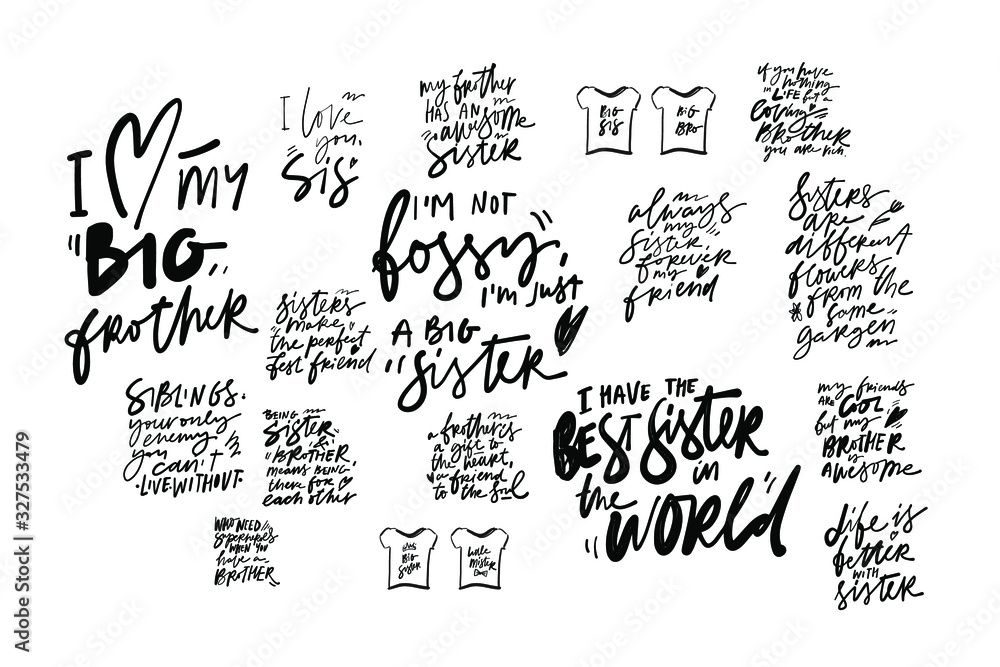 I my
"BIG"
brother
I love
you,
Sis
my brother
HAS AN
awesome
Sister
BIG
SIS
BIG
BRO
if you have
nothing
in LIFE but a
loving
BROTHER
you are rich.
I'M NOT
bossy,
I'm just
A BIG
sister
always
my
sister,
forever
my
friend
sisters
are
different
flowers
from the
same
garden
sisters
make
the perfect
best friend
SIBLINGS.
your only
enemy
you
can't
LIVE WITHOUT.
BEING
SISTER
&
BROTHER
means BEING
there for
each other
a brother is
a gift to
the heart,
a friend
to the soul
I HAVE THE
BEST sister
in
the WORLD
my friends
ARE COOL
but my
BROTHER
is
AWESOME
WHO NEED
superheroes
WHEN YOU
have a
BROTHER
BIG
sister
little
mister
Life is
better
WITH
sister
Adobe Stock | #327533479